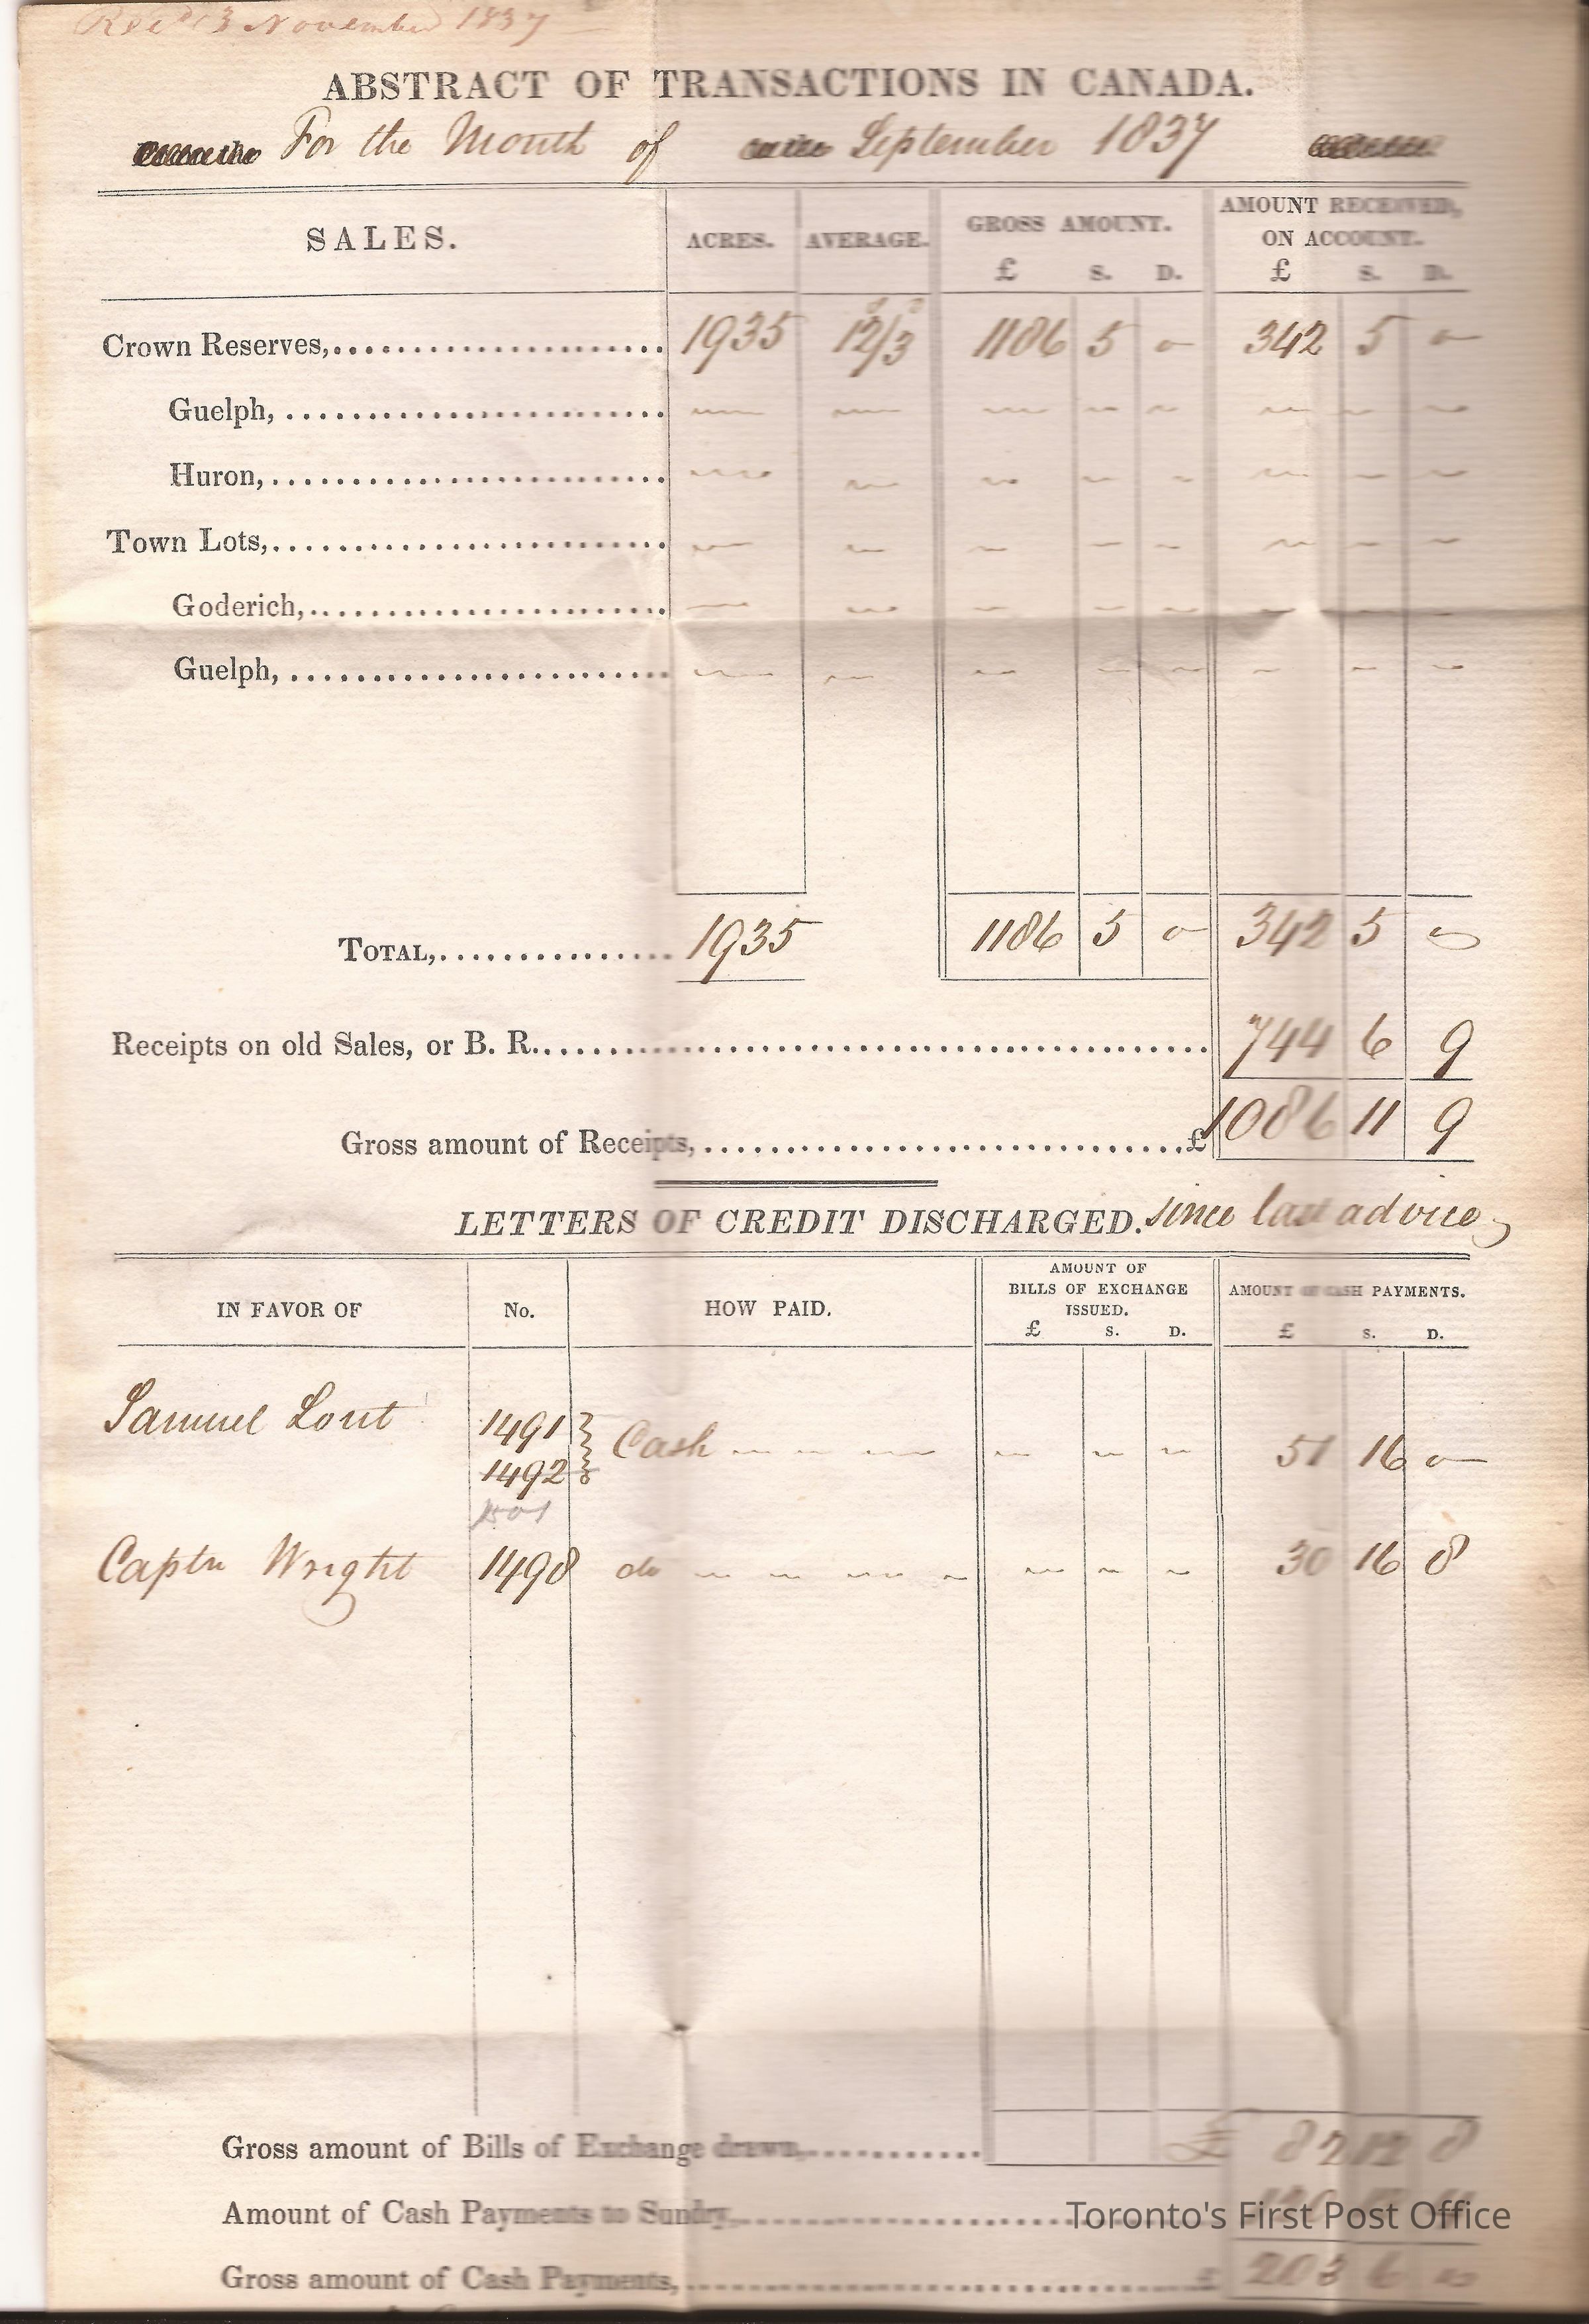 Recd 13 November 1837
ABSTRACT OF TRANSACTIONS IN CANADA.
For the Month of September 1837
SALES. ACRES. AVERAGE. GROSS AMOUNT. £ S. D. AMOUNT RECEIVED, ON ACCOUNT. £ S. D.
Crown Reserves,........................ 1935 12/3 1186 5 0 342 5 0
Guelph, ........................ — — — — — — — —
Huron,........................ — — — — — — — —
Town Lots,........................ — — — — — — — —
Goderich,........................ — — — — — — — —
Guelph, ........................ — — — — — — — —
TOTAL,............... 1935 1186 5 0 342 5 0
Receipts on old Sales, or B. R......................... 744 6 9
Gross amount of Receipts,..............................£ 1086 11 9
LETTERS OF CREDIT DISCHARGED. since last advice
IN FAVOR OF No. HOW PAID. AMOUNT OF BILLS OF EXCHANGE ISSUED. £ S. D. AMOUNT OF CASH PAYMENTS. £ S. D.
Samuel Lout 1491 Cash — — — 51 16 0
1492
1501
Captn Wright 1498 do — — — 30 16 8
Gross amount of Bills of Exchange drawn,............... £ 82 12 8
Amount of Cash Payments to Sundry,........................
Gross amount of Cash Payments,..............................£ 203 6
Toronto's First Post Office